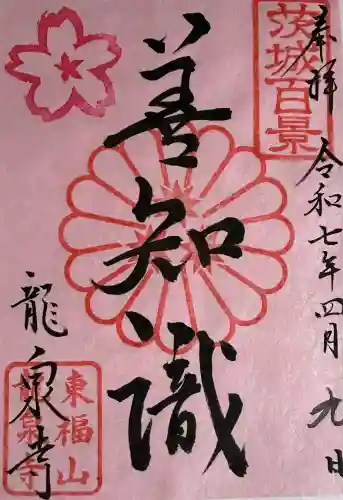 茨城百景
奉拝
令和七年四月九日
善知識
龍泉寺
東福山
龍泉寺